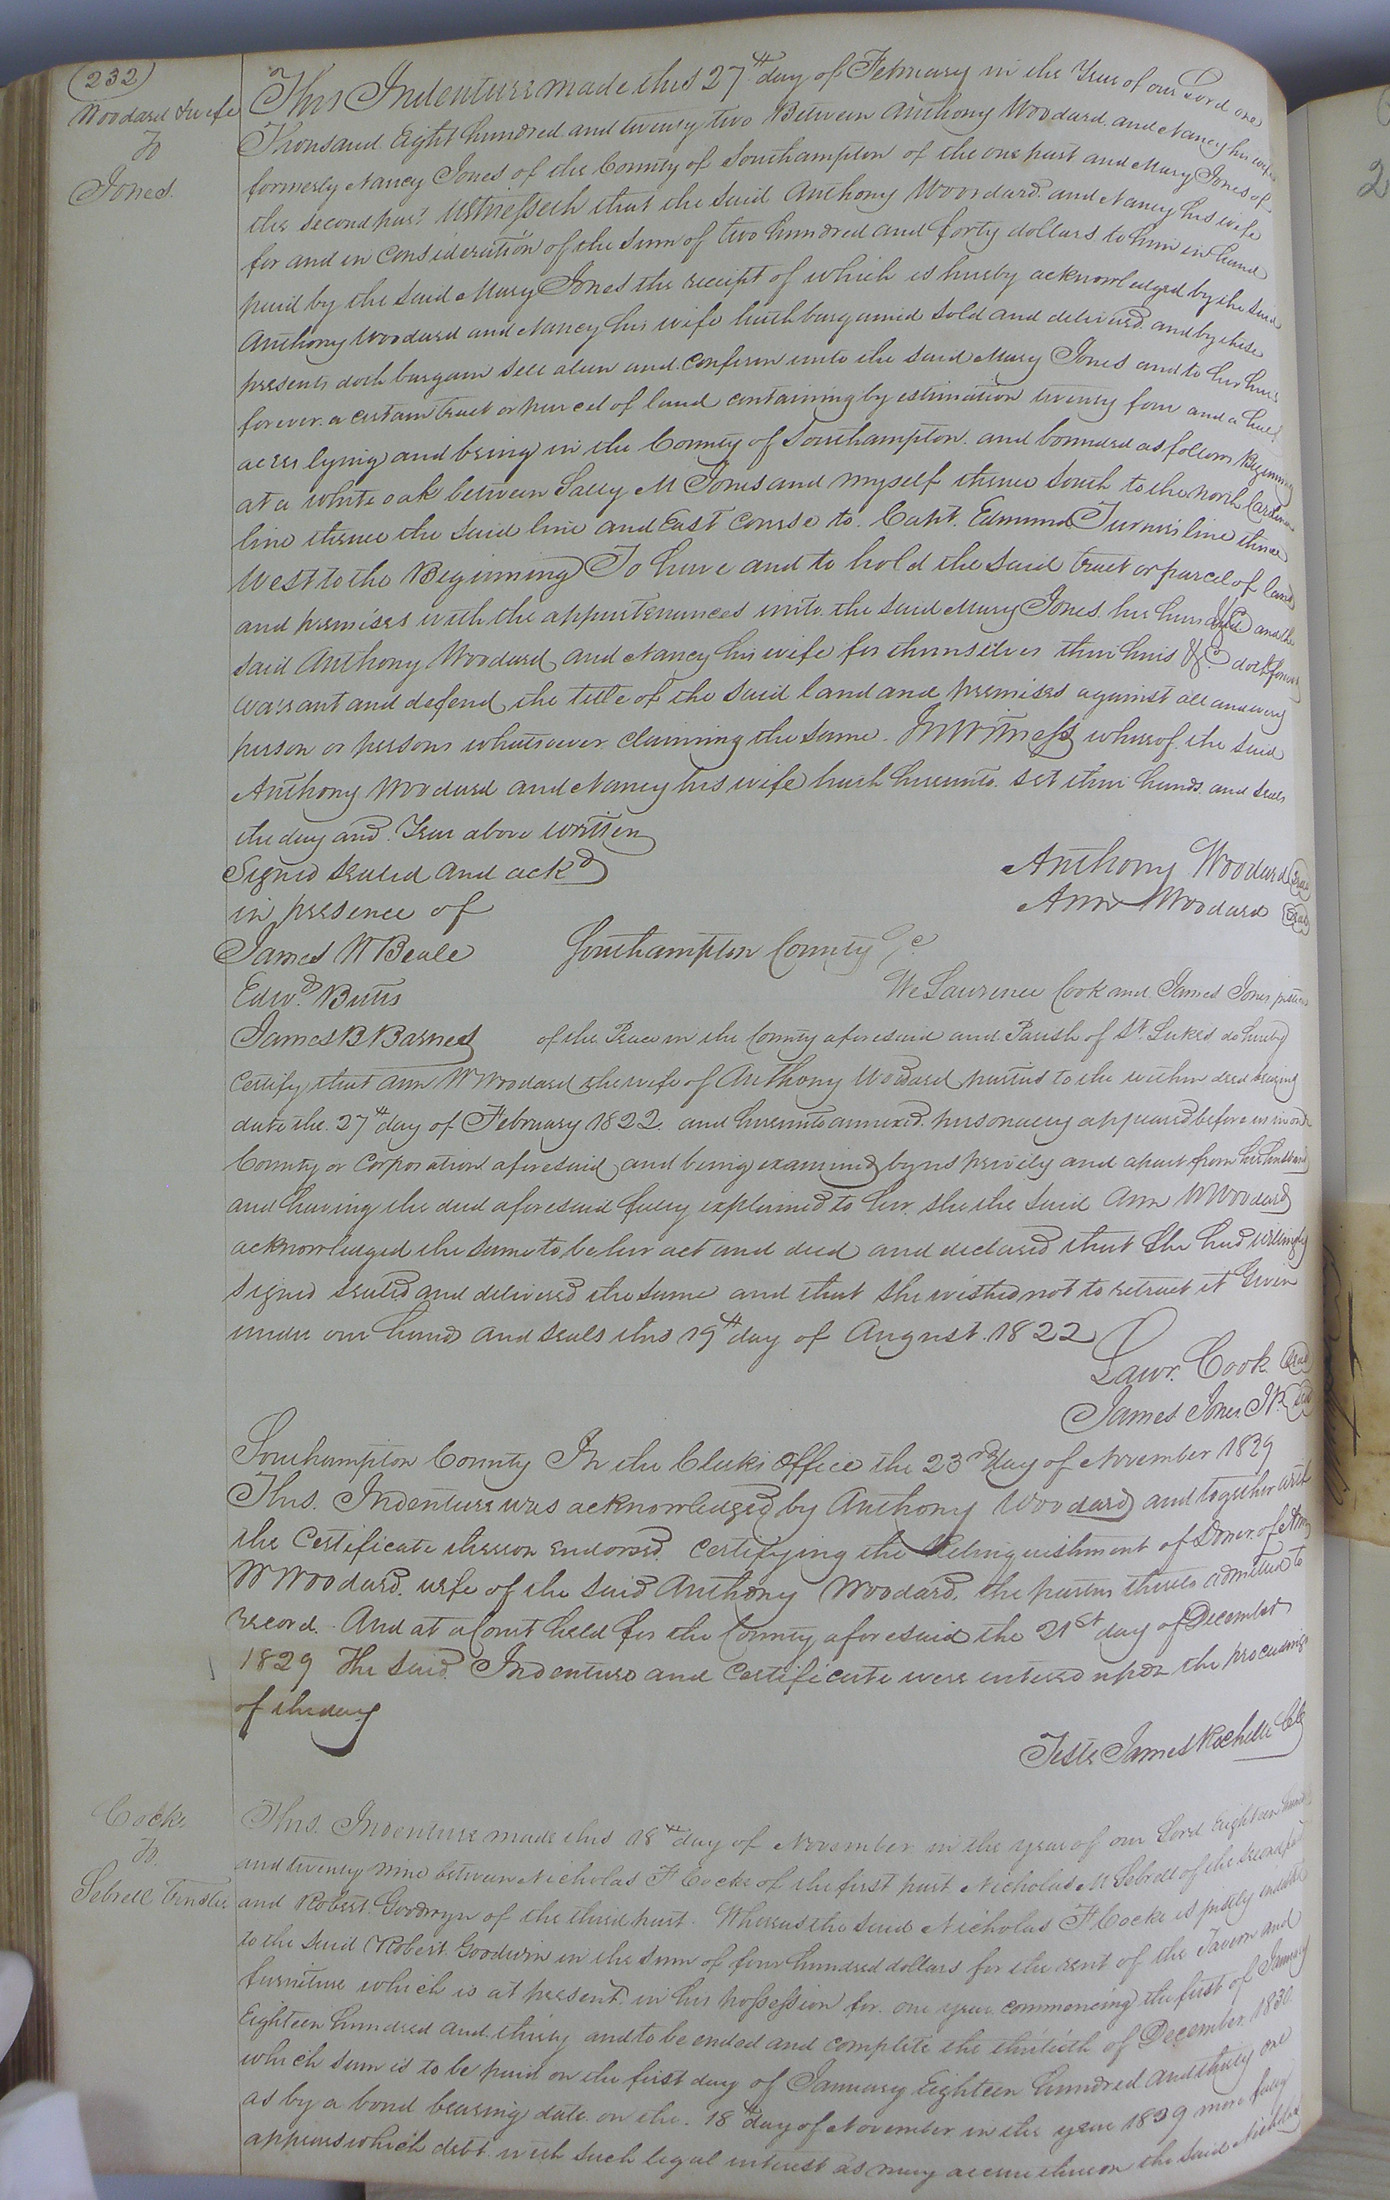 (232)
Woodard & wife
To
Jones.
This Indenture made this 27th day of February in the Year of our Lord one
Thousand Eight hundred and twenty two Between Anthony Woodard and Nancy his wife
formerly Nancy Jones of the County of Southampton of the one part and Mary Jones of
the second part Witnesseth that the said Anthony Woodard and Nancy his wife
for and in consideration of the sum of two hundred and forty dollars to him in hand
paid by the said Mary Jones the receipt of which is hereby acknowledged by the said
Anthony Woodard and Nancy his wife hath bargained sold and delivered and by these
presents doth bargain sell alien and confirm unto the said Mary Jones and to her heirs
forever a certain tract or parcel of land containing by estimation twenty four and a half
acres lying and being in the County of Southampton and bounded as follows Beginning
at a white oak between Sally M Jones and myself thence South to the North Carolina
line thence the said line and East course to Capt. Edmund Turner's line thence
West to the Beginning To have and to hold the said tract or parcel of land
and premises with the appurtenances unto the said Mary Jones her heirs &c and the
said Anthony Woodard and Nancy his wife for themselves their heirs &c. doth forever
warrant and defend the title of the said land and premises against all and every
person or persons whatsoever claiming the same. In Witness whereof the said
Anthony Woodard and Nancy his wife hath hereunto set their hands and seals
the day and Year above written
Signed sealed and ackd
in presence of
Anthony Woodard Seal
Ann Woodard Seal
James W Beale
Edwd. Butts
James B Barnes
Southampton County Sc.
We Lawrence Cook and James Jones justices
of the Peace in the County aforesaid and Parish of St. Lukes do hereby
certify that Ann W Woodard the wife of Anthony Woodard parties to the within deed bearing
date the 27th day of February 1822 and hereunto annexed personally appeared before us in our
County or Corporation aforesaid and being examined by us privily and apart from her husband
and having the deed aforesaid fully explained to her she the said Ann W Woodard
acknowledged the same to be her act and deed and declared that she had willingly
signed sealed and delivered the same and that she wished not to retract it Given
under our hands and seals this 19th day of August 1822
Lawr. Cook Seal
James Jones Jr. Seal
Southampton County In the Clerks Office the 23rd day of November 1829
This Indenture was acknowledged by Anthony Woodard and together with
the Certificate thereon endorsed certifying the Relinquishment of Dower of Ann
W Woodard wife of the said Anthony Woodard, the parties thereto admitted to
record. And at a Court held for the County aforesaid the 21st day of December
1829 The said Indenture and Certificate were entered upon the proceedings
of the day
Teste James Rochelle Clk
Cocke
To
Sebrell trustee
This Indenture made this 18th day of November in the year of our Lord Eighteen hundred
and twenty nine between Nicholas F Cocke of the first part Nicholas M Sebrell of the second part
and Robert Goodwyn of the third part. Whereas the said Nicholas F Cocke is justly indebted
to the said Robert Goodwin in the sum of four hundred dollars for the rent of the Tavern and
furniture which is at present in his possession for one year commencing the first of January
Eighteen hundred and thirty and to be ended and complete the thirtieth of December 1830.
which sum is to be paid on the first day of January Eighteen hundred and thirty one
as by a bond bearing date on the 18th day of November in the year 1829 more fully
appears which debt with such legal interest as may accrue thereon the said Nicholas